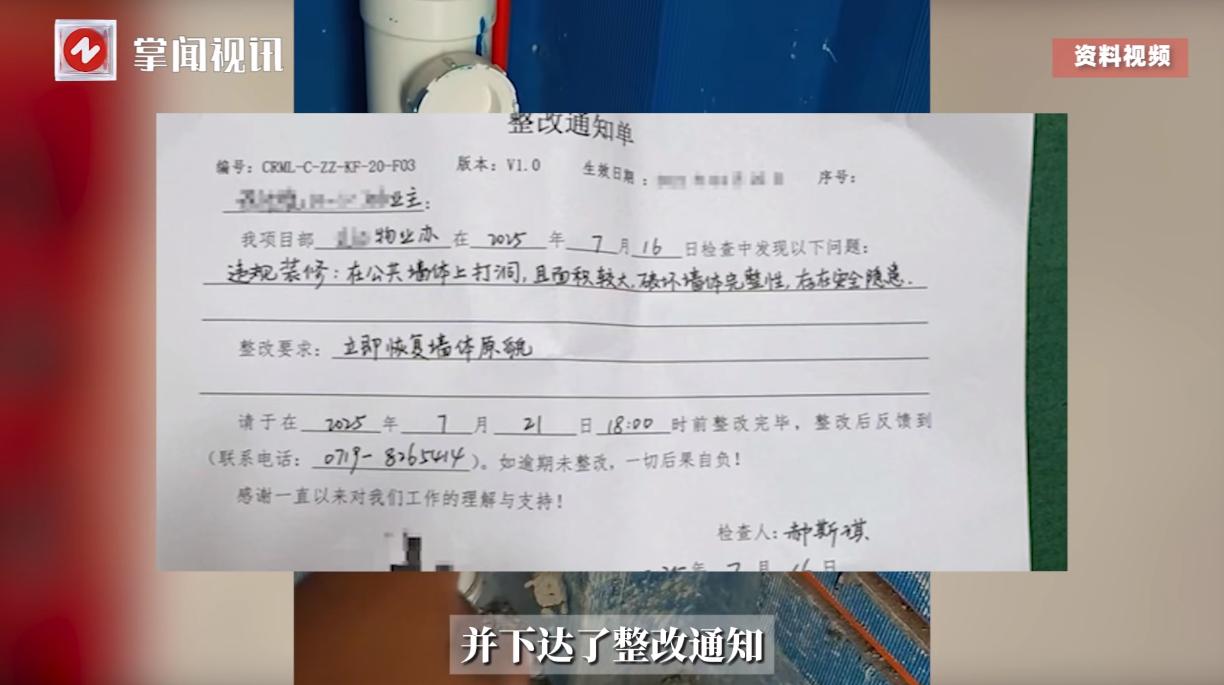 掌闻视讯
资料视频
整改通知单
编号：CRML-C-ZZ-KF-20-F03 版本：V1.0 生效日期： 序号：
业主：
我项目部 物业办 在 2025 年 7 月 16 日检查中发现以下问题：
违规装修：在公共墙体上打洞，且面积较大，破坏墙体完整性，存在安全隐患.
整改要求：立即恢复墙体原貌
请于在 2025 年 7 月 21 日 18:00 时前整改完毕，整改后反馈到
（联系电话：0719-8265414）。如逾期未整改，一切后果自负！
感谢一直以来对我们工作的理解与支持！
检查人：郝斯琪
年 7 月 16 日
并下达了整改通知